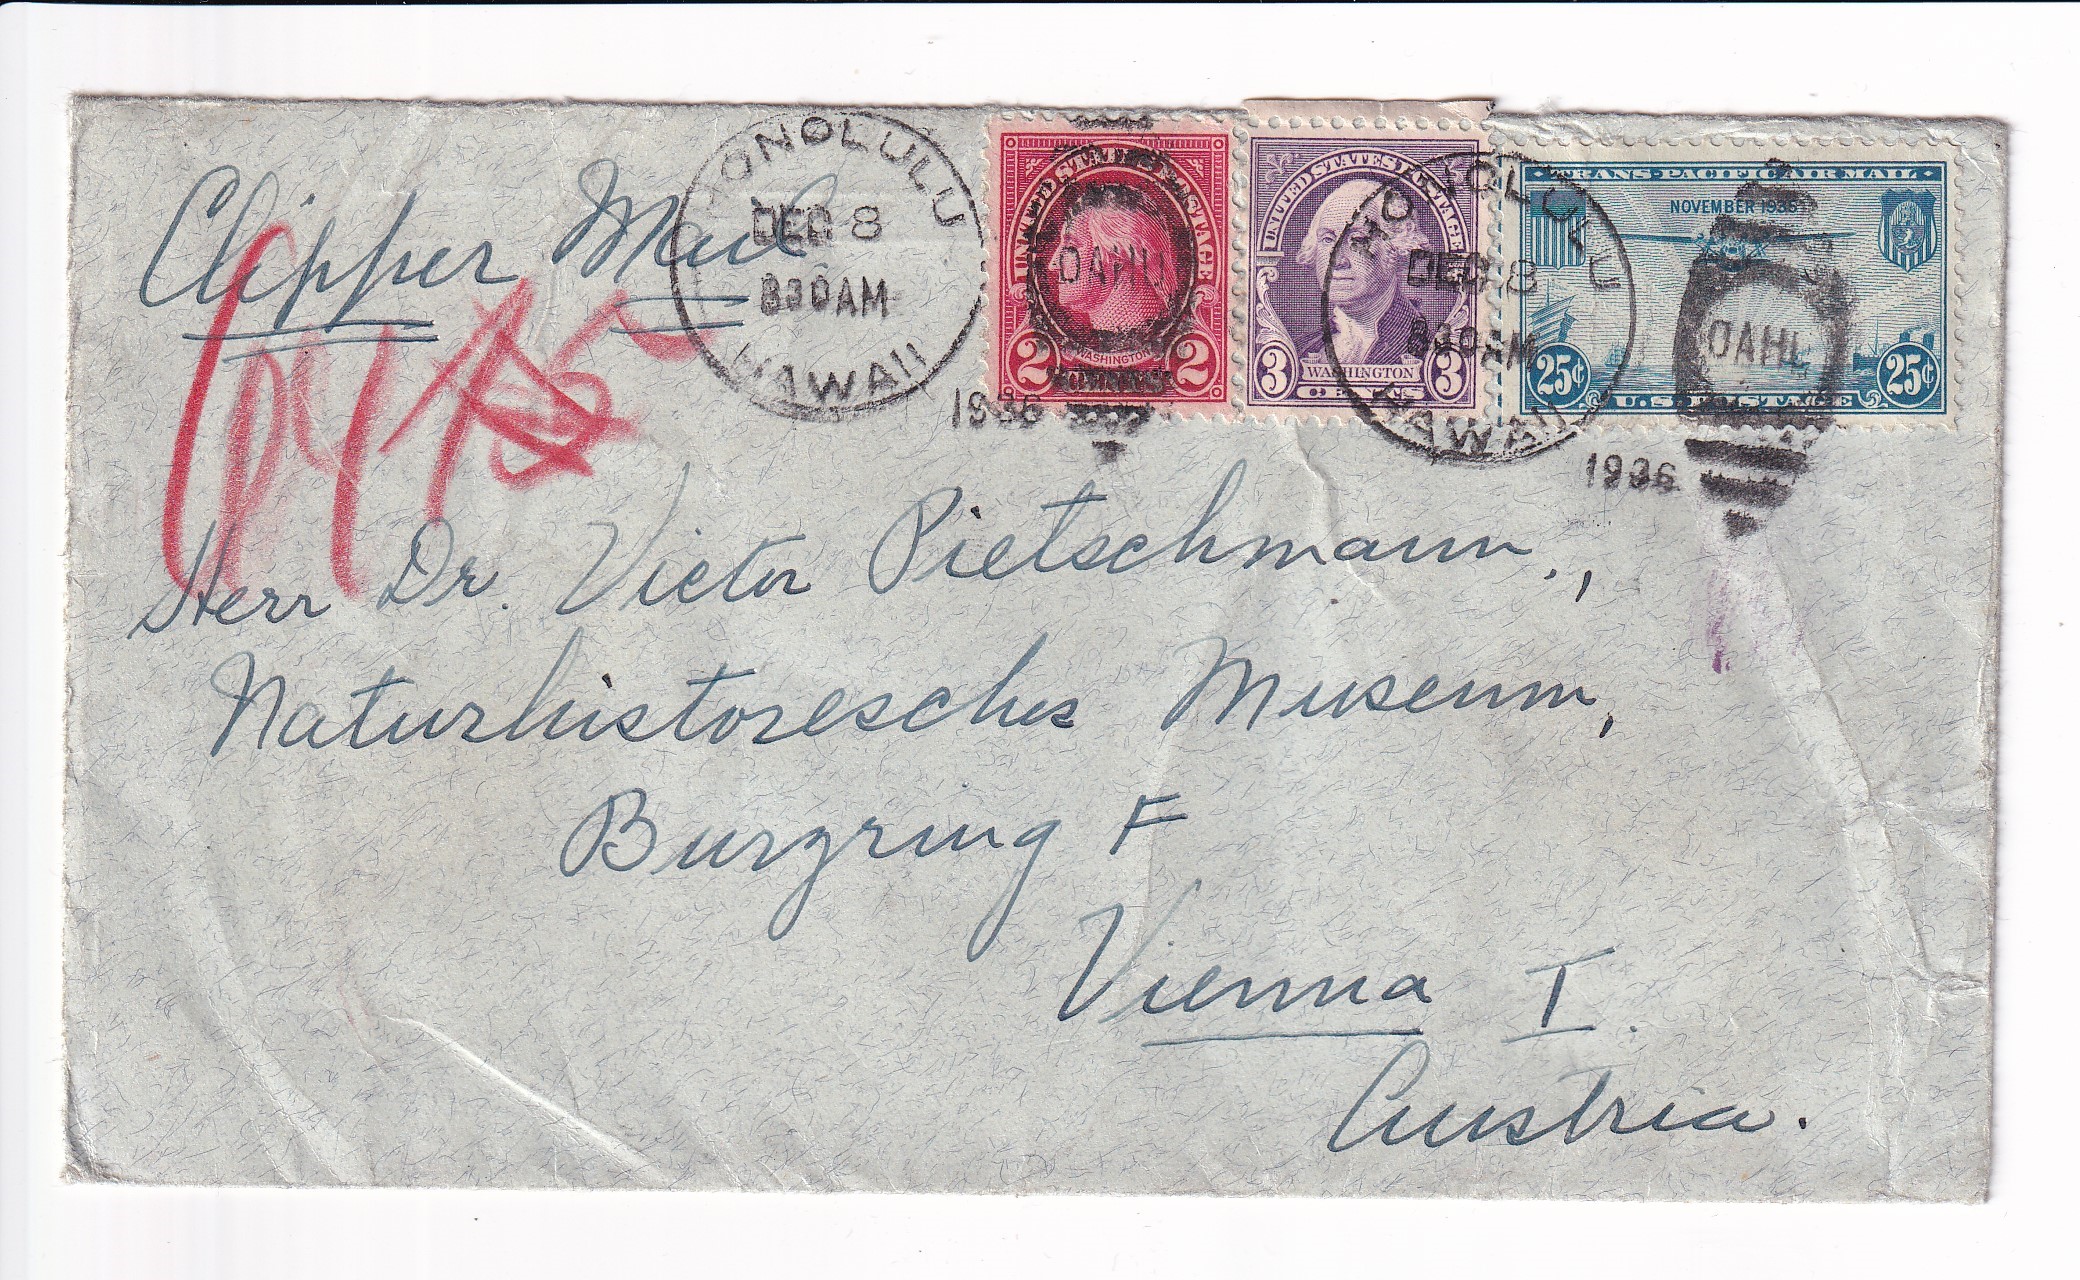 Clipper Mail
HONOLULU
DEC 8
830AM
HAWAII
1936
UNITED STATES POSTAGE
OAHU
WASHINGTON
2 CENTS 2
UNITED STATES POSTAGE
3 WASHINGTON 3
CENTS
HONOLULU
DEC 8
830AM
HAWAII
1936
TRANS-PACIFIC AIR MAIL
NOVEMBER 1935
OAHU
25¢ U.S. POSTAGE 25¢
Herr Dr. Victor Pietschmann.,
Naturhistoresches Museum,
Burgring F
Vienna I.
Austria.